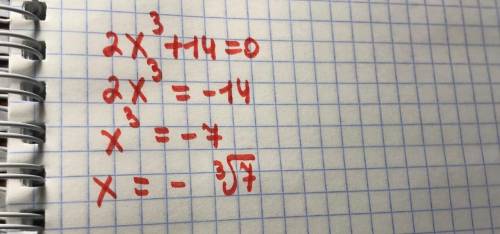 2x³+14=0
2x³ = -14
x³ = -7
x = - ³√7